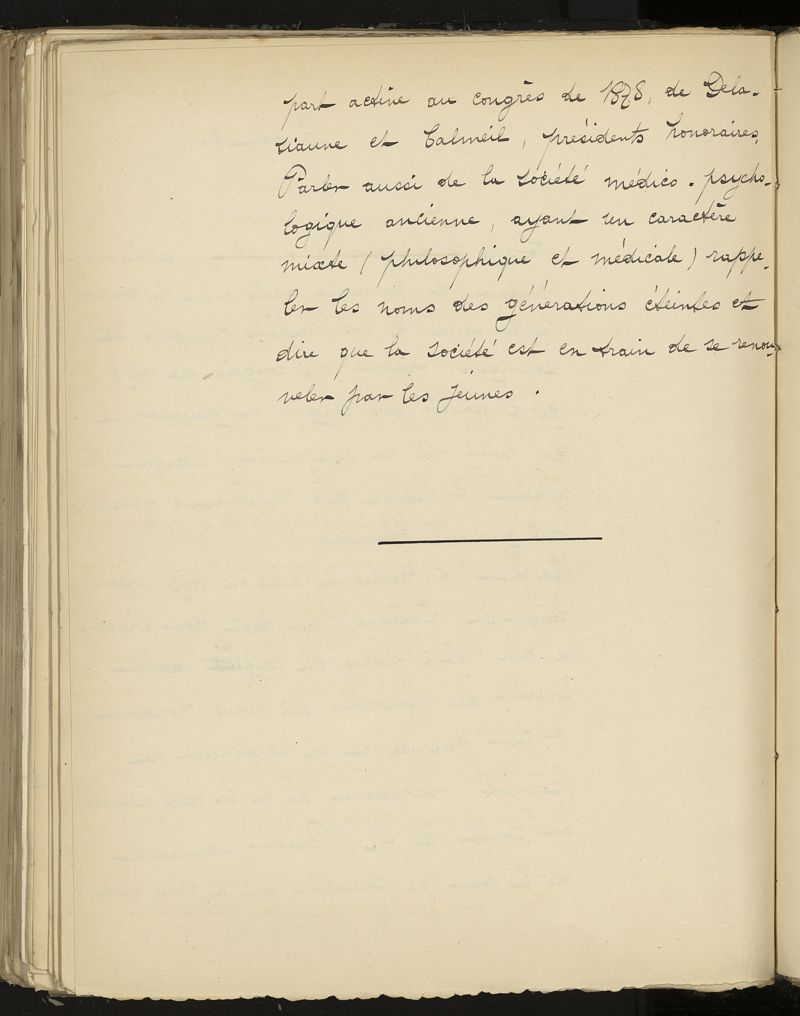 part active au congrès de 1878, de Dela-
siauve et Calmeil, présidents honoraires.
Parler aussi de la société médico-psycho-
logique ancienne, ayant un caractère
mixte (philosophique et médicale) rappe-
ler les noms des générations éteintes et
dire que la société est en train de se renou-
veler par les jeunes.